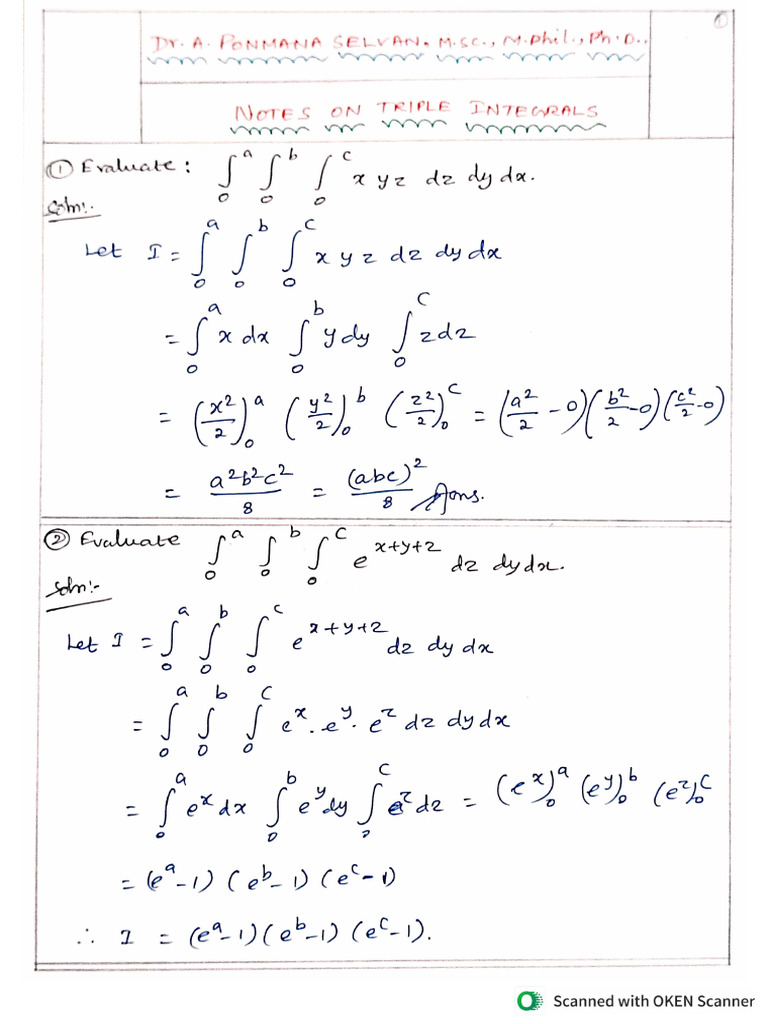 ①
Dr. A. PONMANA SELVAN, M.Sc., M.Phil., Ph.D.,
NOTES ON TRIPLE INTEGRALS
① Evaluate : ∫₀^a ∫₀^b ∫₀^c x y z dz dy dx.
Soln:-
Let I = ∫₀^a ∫₀^b ∫₀^c x y z dz dy dx
= ∫₀^a x dx ∫₀^b y dy ∫₀^c z dz
= (x²/2)₀^a (y²/2)₀^b (z²/2)₀^c = (a²/2 - 0)(b²/2 - 0)(c²/2 - 0)
= a²b²c²/8 = (abc)²/8 Ans.
② Evaluate ∫₀^a ∫₀^b ∫₀^c e^(x+y+z) dz dy dx.
Soln:-
Let I = ∫₀^a ∫₀^b ∫₀^c e^(x+y+z) dz dy dx
= ∫₀^a ∫₀^b ∫₀^c e^x . e^y . e^z dz dy dx
= ∫₀^a e^x dx ∫₀^b e^y dy ∫₀^c e^z dz = (e^x)₀^a (e^y)₀^b (e^z)₀^c
= (e^a - 1) (e^b - 1) (e^c - 1)
∴ I = (e^a - 1) (e^b - 1) (e^c - 1).
Scanned with OKEN Scanner